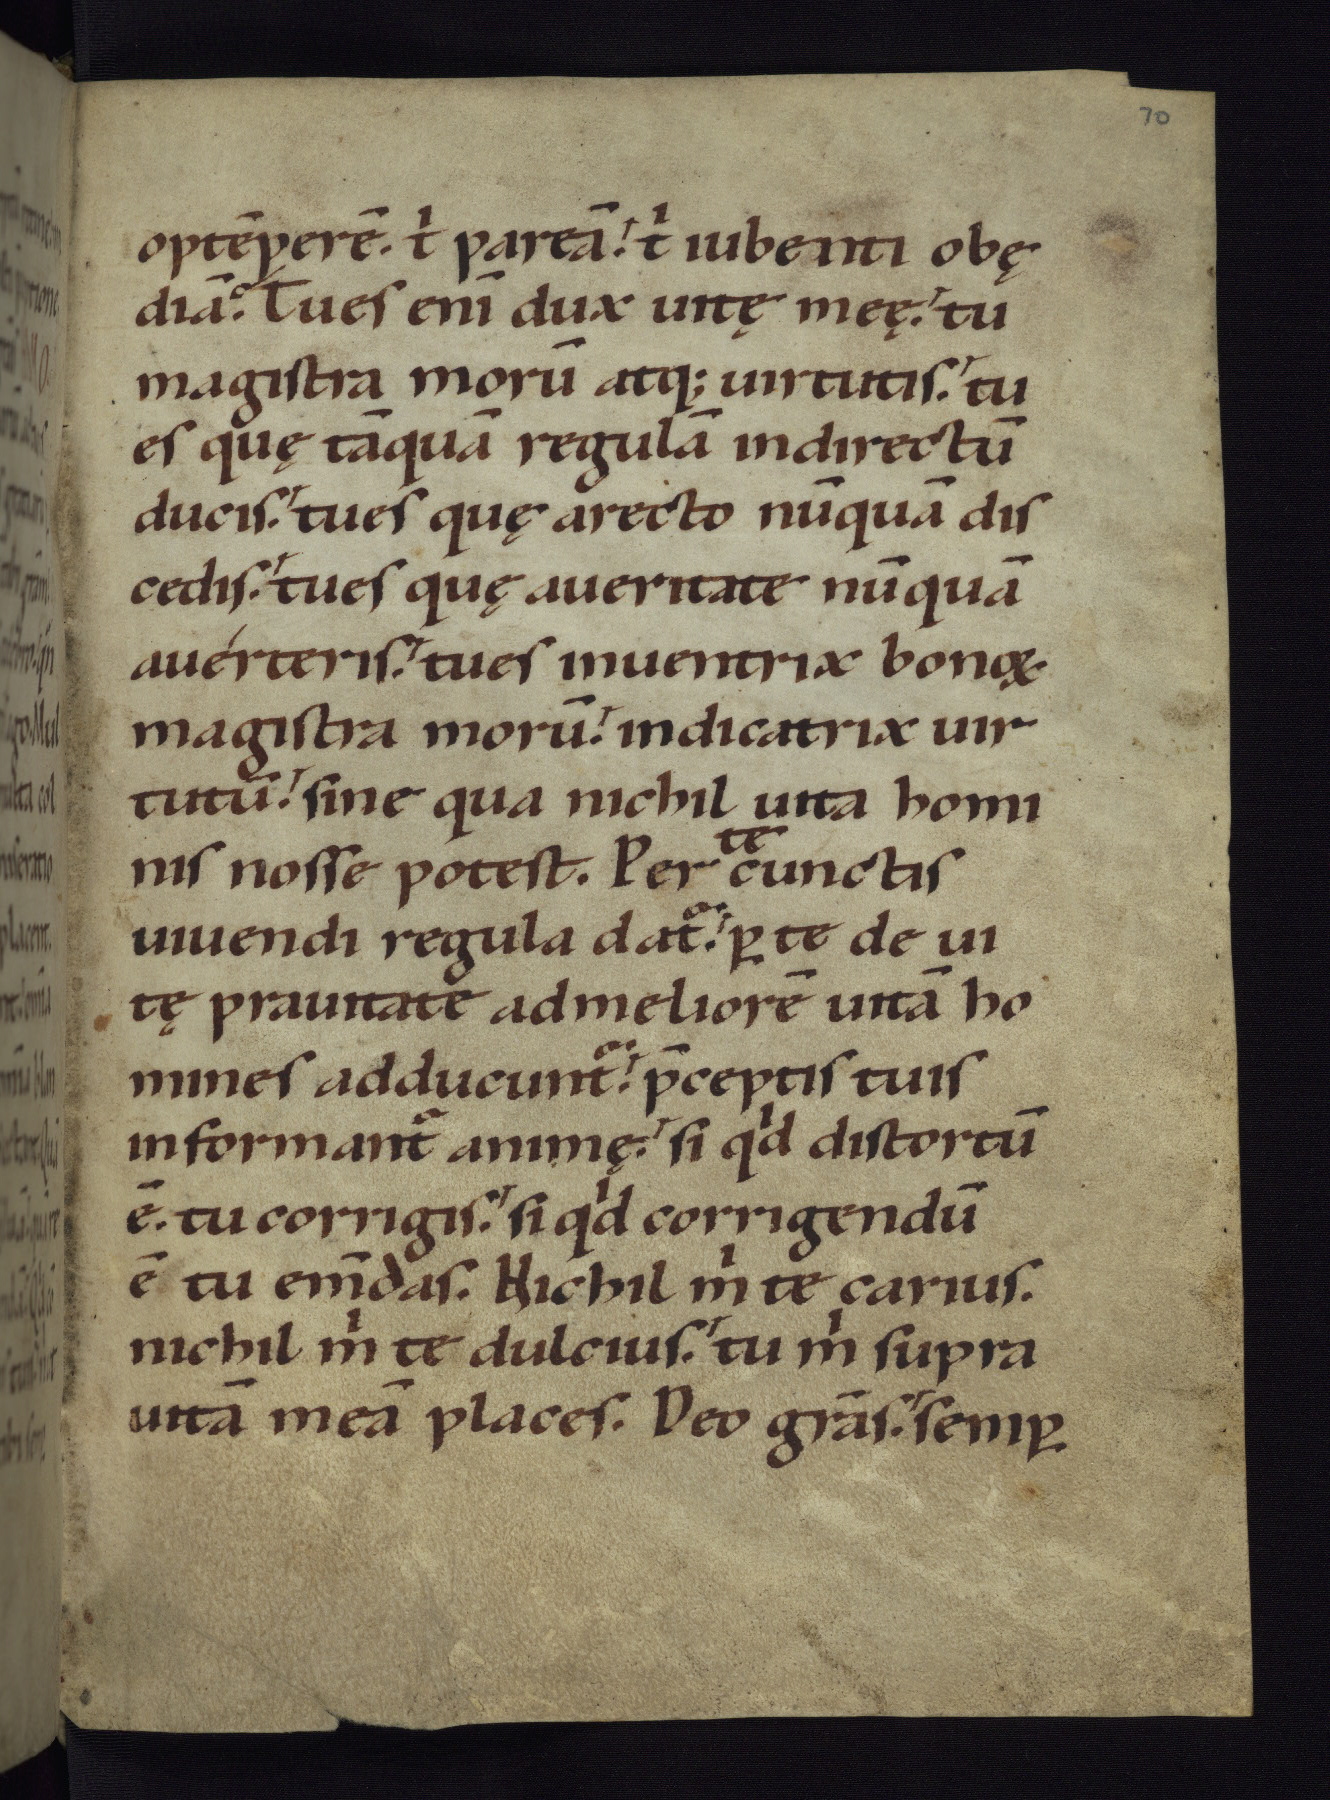 70
optēꝑerē. t̍ pareā. t̍ iubenti obę
diā. Tu es enī dux uitę meę. tu
magistra morū atq; uirtutis. tu
es quę tāquā regulā indirectū
ducis. tu es quę arecto nūquā dis
cedis. tu es quę aueritate nūquā
auérteris. tu es inuentrix bonoꝝ
magistra morū. indicatrix uir
tutū. sine qua nichil uita homi
nis nosse potest. Per te cunctis
uiuendi regula dat̃. ꝑ te de ui
tę prauitate admeliorē uitā ho
mines adducunt̃. p̄ceptis tuis
informant̃ animę. si qͥd distortū
ē. tu corrigis. si qͥd corrigendū
ē tu em̄das. Nichil mͥ te carius.
nichil mͥ te dulcius. tu mͥ supra
uitā meā places. Deo grās. semꝑ